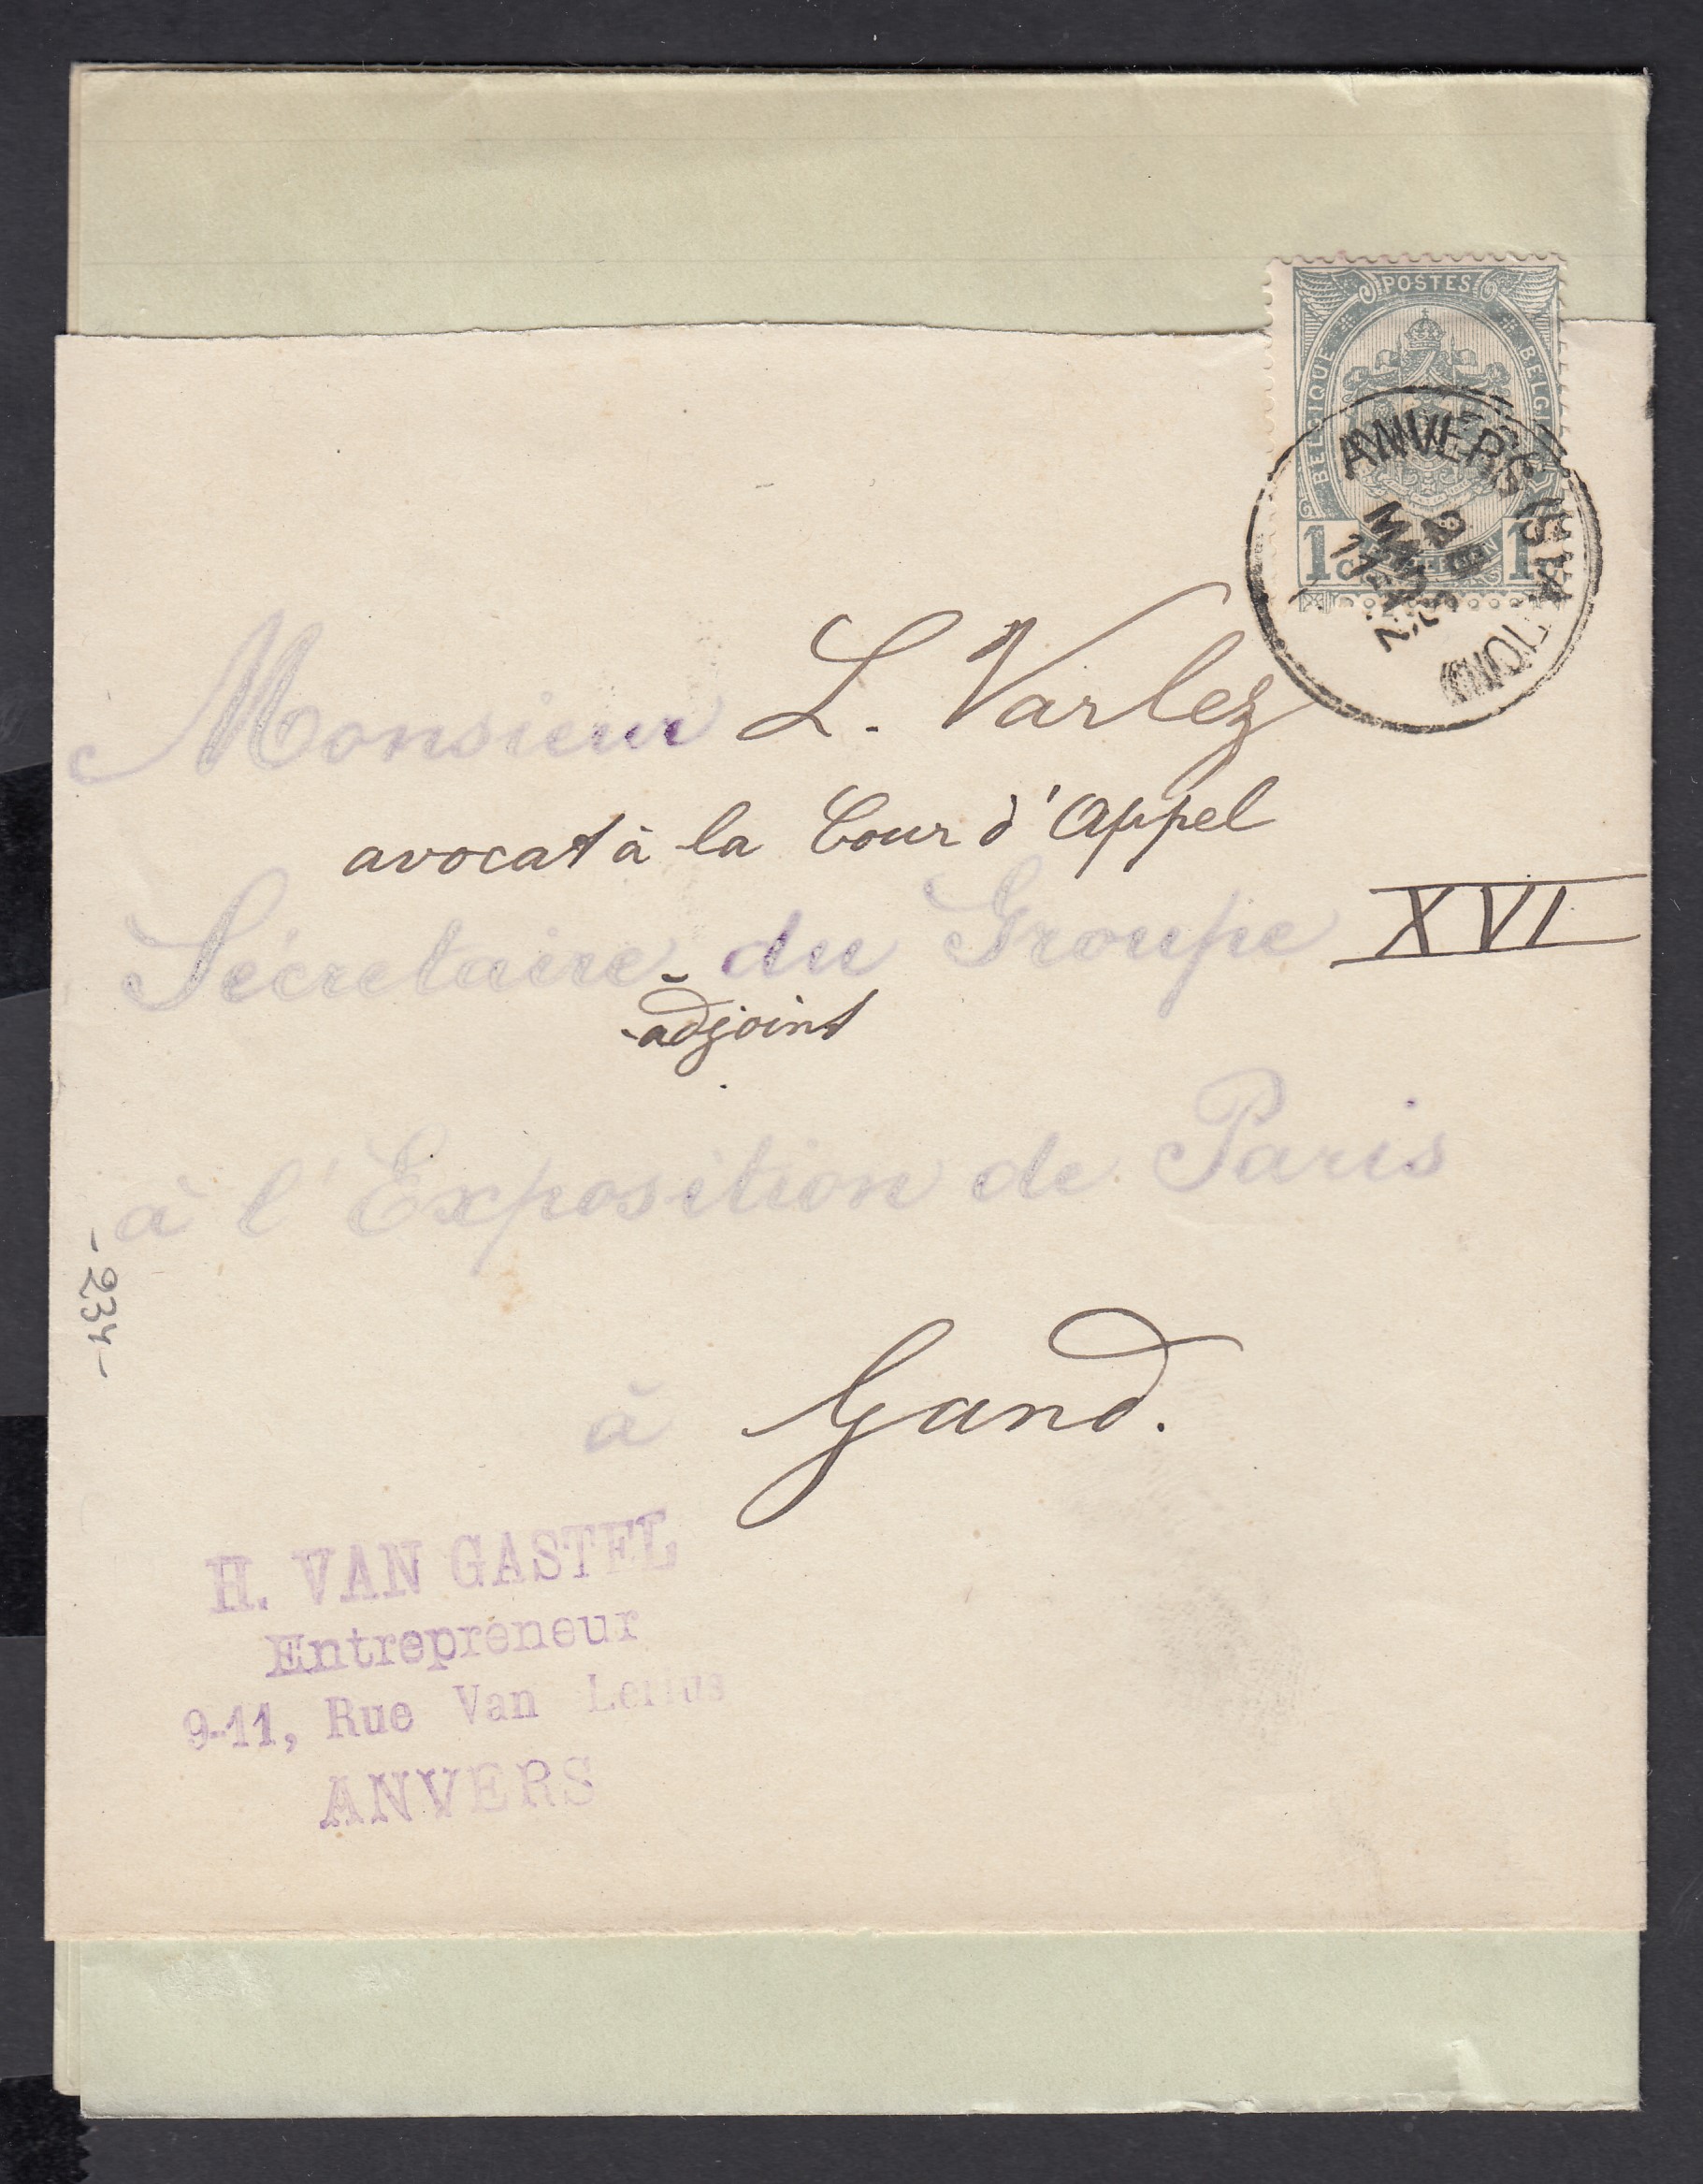 POSTES
BELGIQUE BELGIË
1 1
ANVERS (STATION)
Monsieur L. Varlez
avocat à la Cour d'Appel
Sécretaire du Groupe XVI
-adjoint
à l'Exposition de Paris
-234-
à Gand.
H. VAN GASTEL
Entrepreneur
9-11, Rue Van
ANVERS